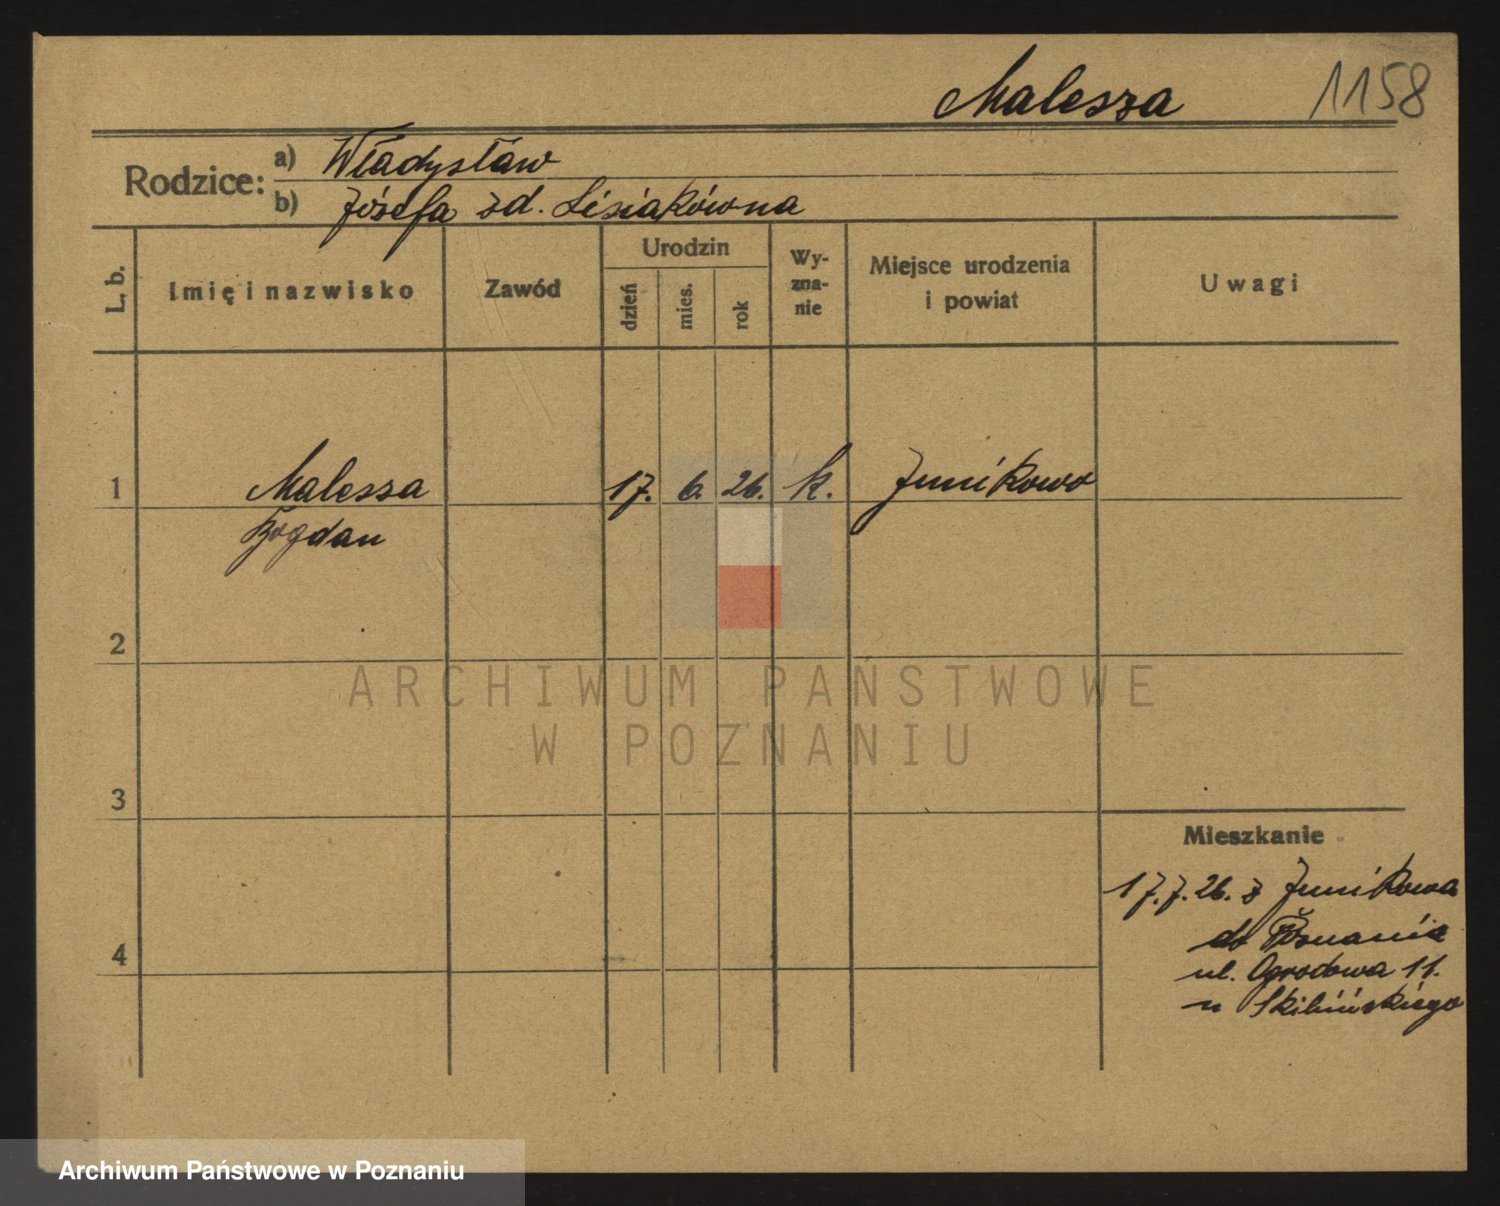 Malesza 1158
Rodzice: a) Władysław
b) Józefa zd. Lisiakówna
L. b. Imię i nazwisko Zawód Urodzin dzień mies. rok Wy-zna-nie Miejsce urodzenia i powiat Uwagi
1 Malesza 17. 6. 26. k. Junikowo
Bogdan
2
ARCHIWUM PAŃSTWOWE
W POZNANIU
3
Mieszkanie
17.7.26. z Junikowa
do Poznania
4
ul. Ogrodowa 11.
u
Archiwum Państwowe w Poznaniu